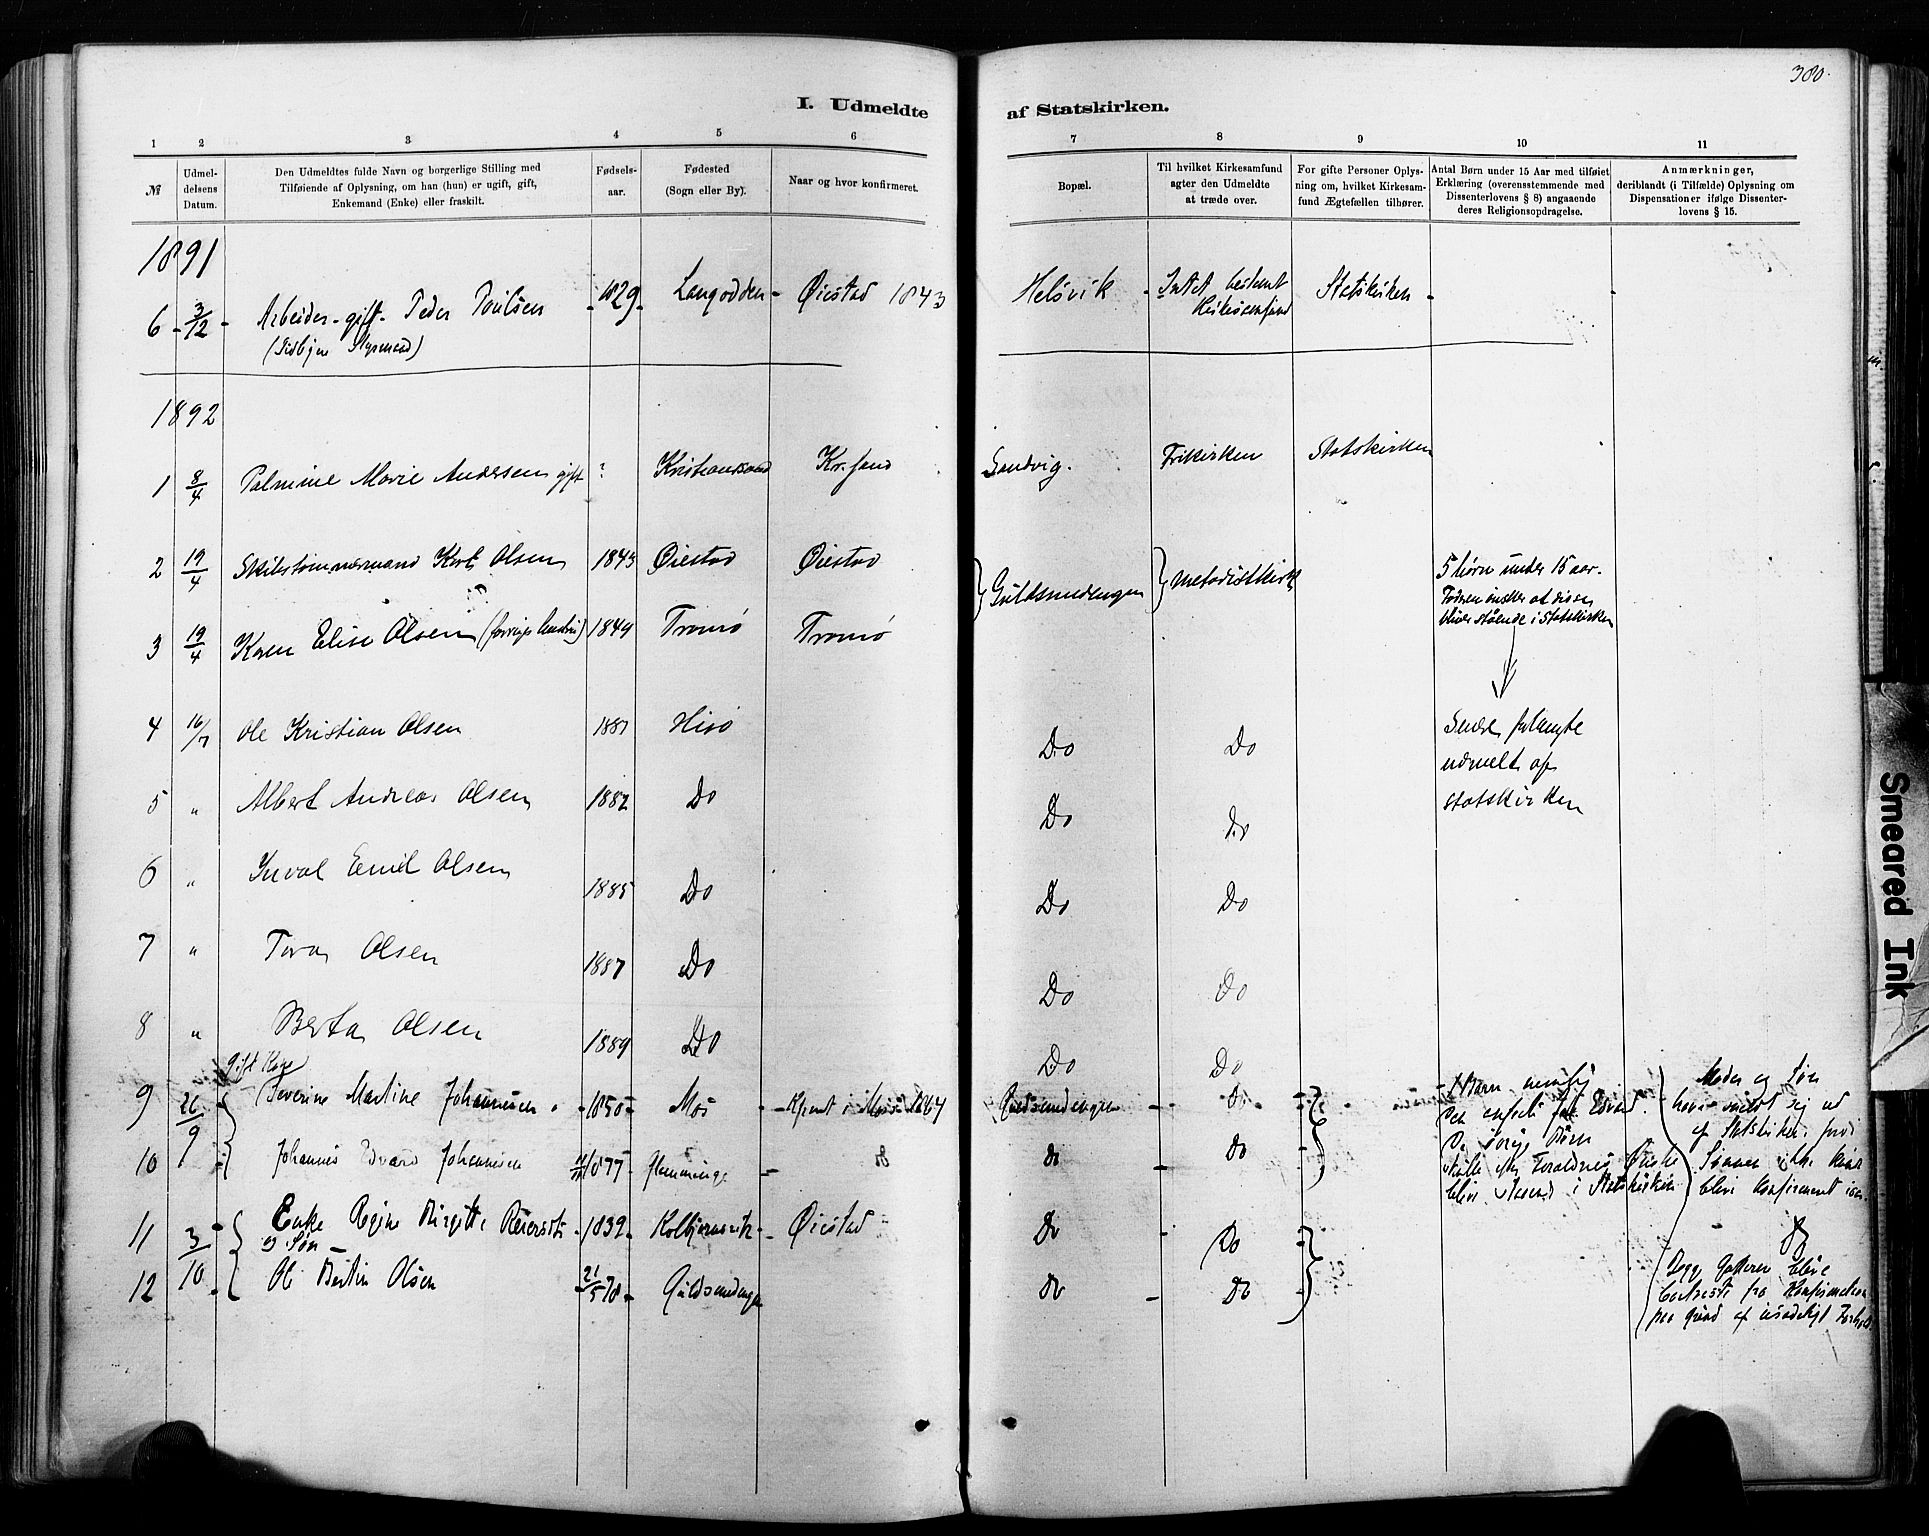 380.
I. Udmeldte af Statskirken.
1 2 3 4 5 6 7 8 9 10 11
№
Udmeldelsens Datum.
Den Udmeldtes fulde Navn og borgerlige Stilling med Tilføiende af Oplysning, om han (hun) er ugift, gift, Enkemand (Enke) eller fraskilt.
Fødselsaar.
Fødested (Sogn eller By).
Naar og hvor konfirmeret.
Bopæl.
Til hvilket Kirkesamfund agter den Udmeldte at træde over.
For gifte Personer Oplysning om, hvilket Kirkesamfund Ægtefællen tilhører.
Antal Børn under 15 Aar med tilføiet Erklæring (overensstemmende med Dissenterlovens § 8) angaaende deres Religionsopdragelse.
Anmærkninger, deriblandt (i Tilfælde) Oplysning om Dispensationer ifølge Dissenterlovens § 15.
1891
6 - 3/12 - Arbeider - gift - Peder Poulsen - 1829 - Langodden - Øiestad 1843 Helsvik - Intet bestemt Kirkesamfund Statskirken -
1892
1 8/4 Palmine Marie Andersen gift ? Kristianssand Kr.sand Sandvig. Frikirken Statskirken
2 19/4 Skibstømmermand Olsen 1843 Øiestad Øiestad Guldsmedengen Metodistkirk 5 børn under 15 aar.
ønsker at disse
bliver stående i Statskirken
3 19/4 Karen Elise Olsen 1849 Tromø Tromø
4 16/7 Ole Kristian Olsen 1881 Hisø Do Do Senere
udmeldt af
statskirken
5 " Albert Andreas Olsen 1882 Do Do Do
6 " Emil Olsen 1885 Do Do Do
7 " Tora Olsen 1887 Do Do Do
8 " Berta Olsen 1889 Do Do Do
gift Kone
9 26/9 Severine Martine Johannesen - 1850 - Mos - i 1864 Guldsmedengen - Do
10 Johannes Edvard Johannesen 1877 - do Do
De øvrige Børn
skulle efter Forældres Ønske
blive i Statskirken
Moder og Søn
have meldt sig ud
af Statskirken, fordi
Sønnen ikke kan
blive konfirmeret
11 3/10 Enke Regine Birgitte - 1839 - Kolbjørnsvik - Øiestad Do - Do
og Søn -
12 Ole Bertin Olsen 21/5 78 - Guldsmedengen Do - Do
Smeared Ink